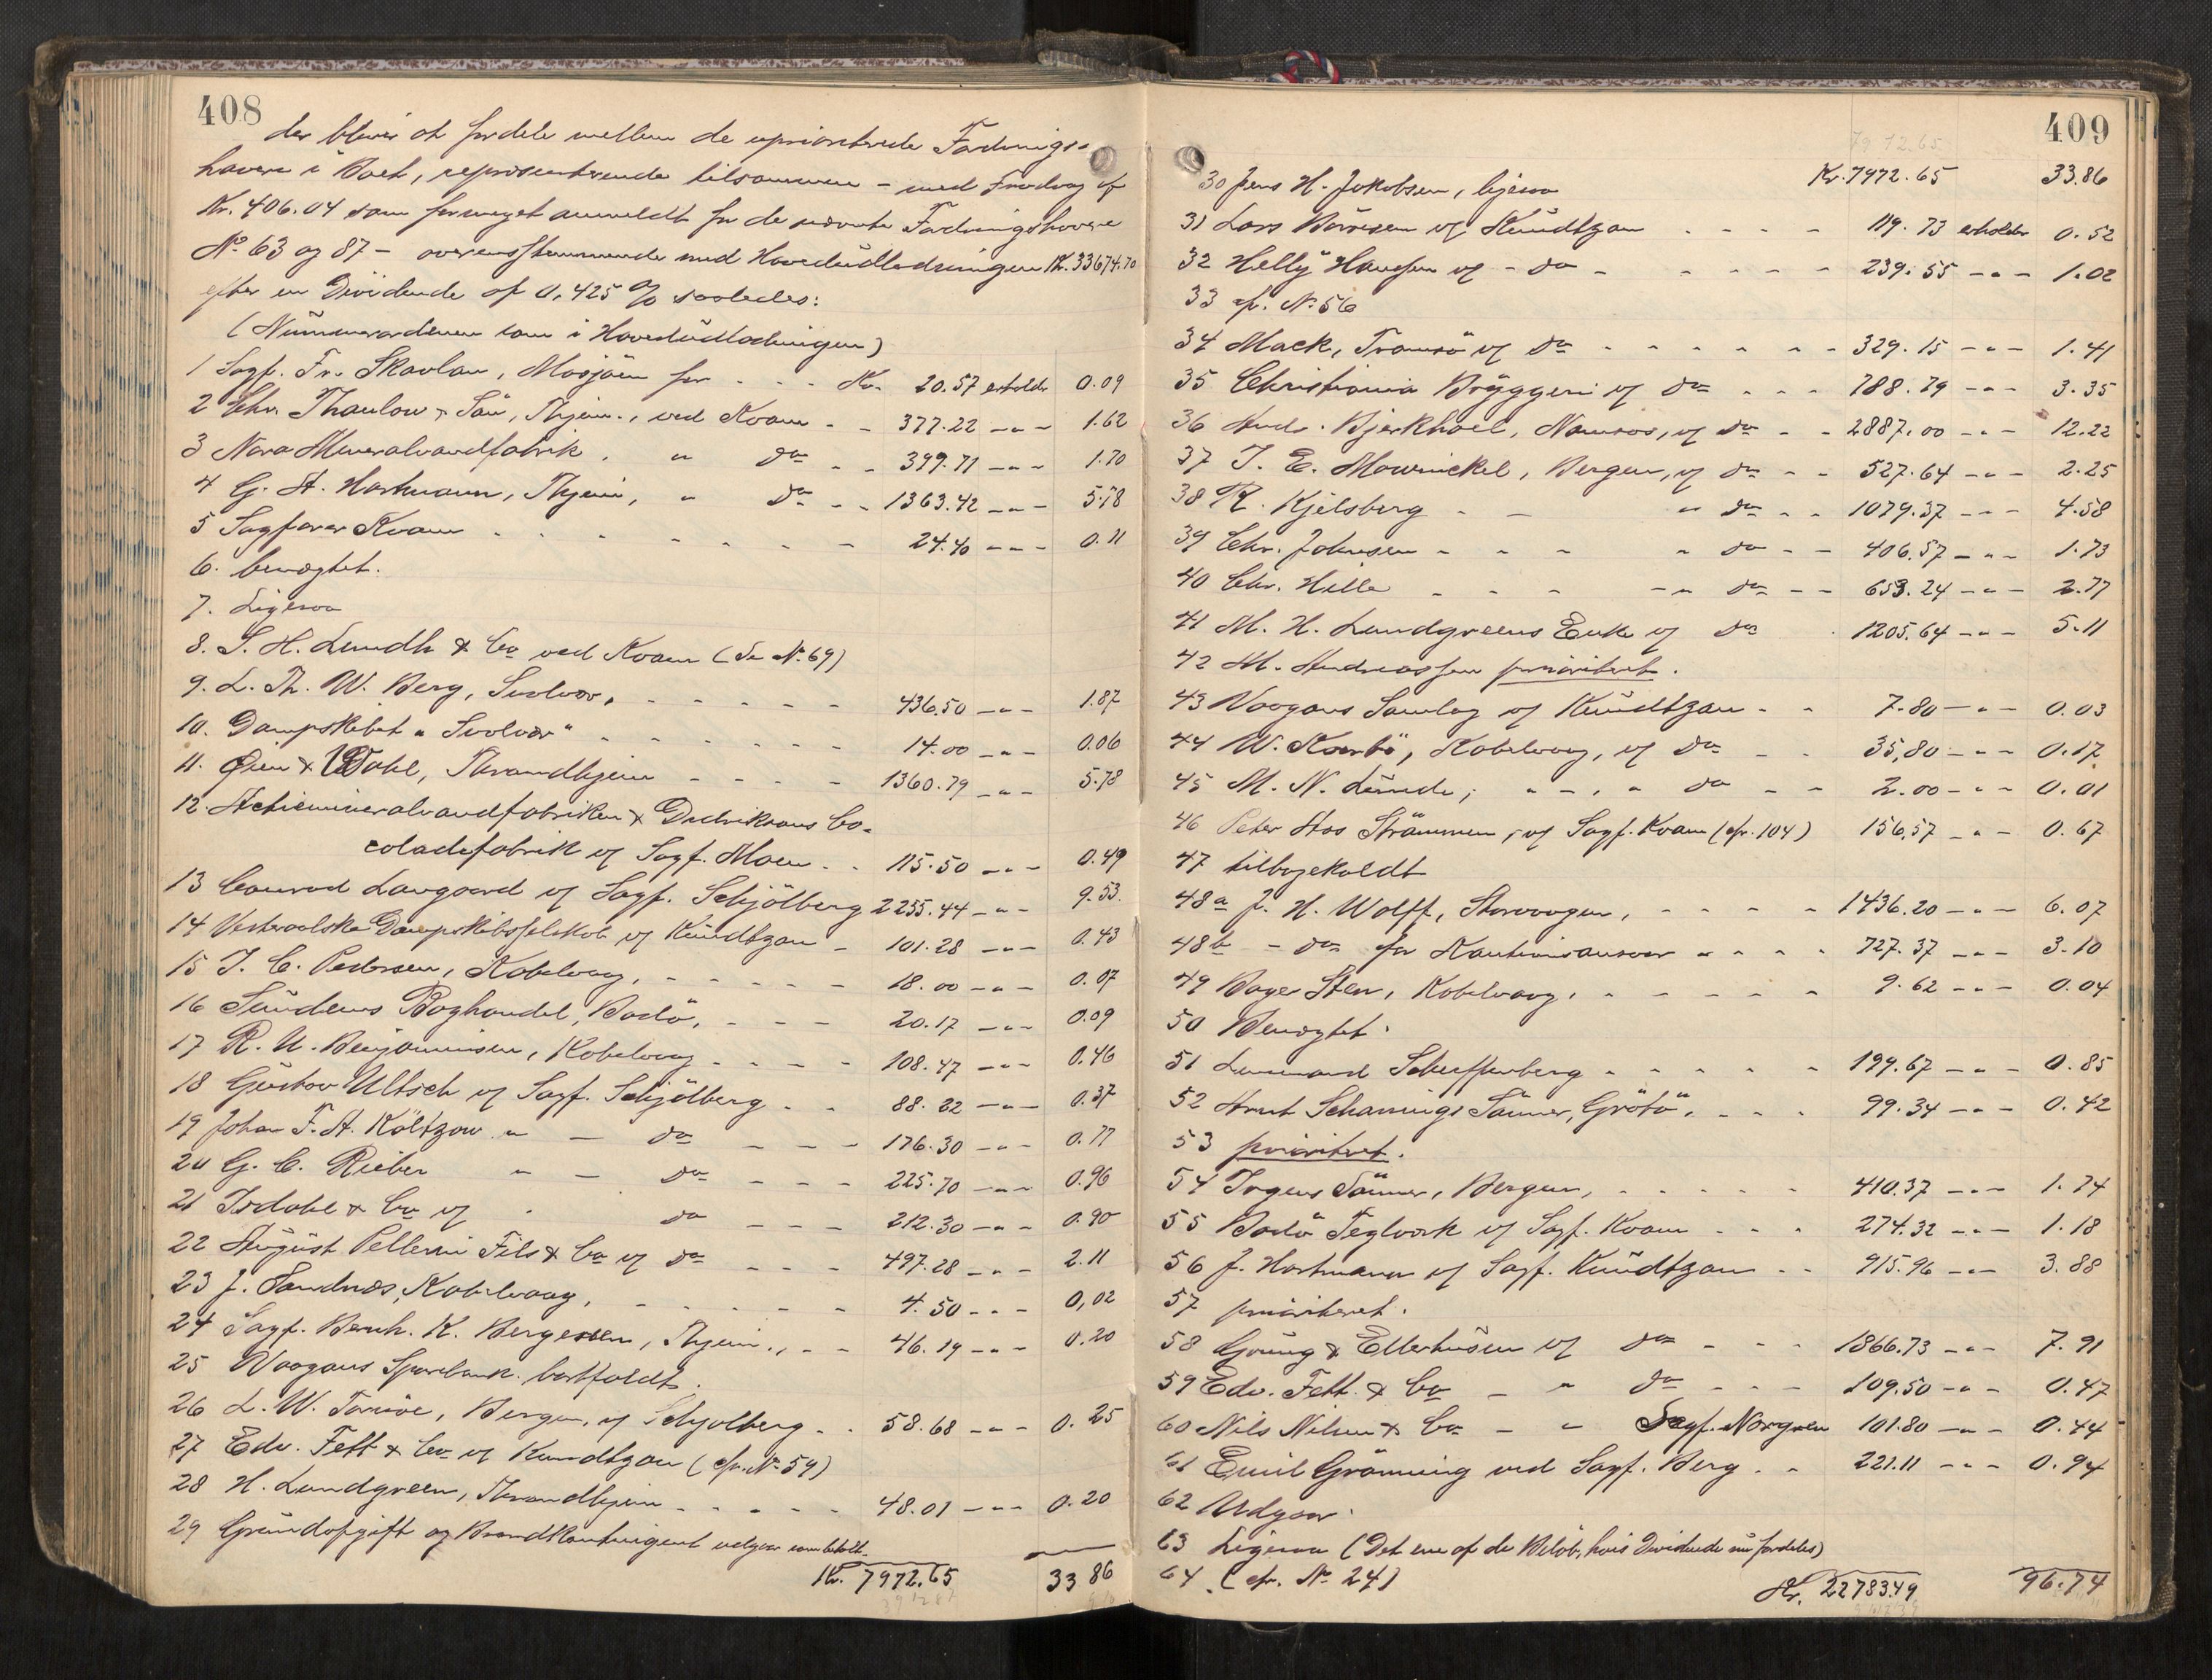 408
der bliver at fordele mellem de uprioriterede Fordrings-
havere i Boet, repræsenterende tilsammen – med Fradrag af
Kr. 406.04 som formeget anmeldt for de nævnte Fordringshavere
No 63 og 87 – overensstemmende med Hovedudlodningen Kr. 33674.70
efter en Dividende af 0,425 % saaledes:
(Nummerordenen som i Hovedudlodningen)
1 Sagf. Fr. Skavlan, Mosjöen for - - - Kr. 20.57 erholder 0.09
2 Chr. Thaulow & Søn, Thjem., ved Kvam - - 377.22 -"- 1.62
3 Nora Mineralvandfabrik . " do - - 399.71 -"- 1.70
4 G. A. Hartmann, Thjem, " do - - 1363.42 -"- 5.78
5 Sagfører Kvam - - - - - - 24.40 -"- 0.11
6. benægtet.
7. Ligesaa
8. S. H. Lundh & Co ved Kvam (se No. 69)
9. L. Th. W. Berg, Svolvær, - - - - - 436.50 -"- 1.87
10. Dampskibet "Svolvær" - - - - - - 14.00 -"- 0.06
11. Øien & Wahl, Throndhjem - - - - 1360.79 -"- 5.78
12. Actiemineralvandfabriken & Dedriksons Co-
coladefabrik v/ Sagf. Moen - - 115.50 -"- 0.49
13 Conrad Langaard v/ Sagf. Schjölberg 2255.44 -"- 9.53.
14 Vesteraalske Dampskibsselskab v/ Kundtzon - 101.28 -"- 0.43
15 J. C. Pedersen, Kabelvaag, - - - - - 18.00 -"- 0.07
16 Sündems Boghandel, Bodö, - - - 20.17 -"- 0.09
17 R. U. Benjaminsen, Kabelvaag - - - - 108.47 -"- 0.46
18 Gustav Ultsch v/ Sagf. Schjölberg - - 88.22 -"- 0.37
19 Johan F. A. Költzow " – do - - - 176.30 -"- 0.77
20 G. C. Rieber " – do - - - 225.70 -"- 0.96
21 Isdahl & Co v/ do - - - 212.30 -"- 0.90
22 August Pellerin Fils & Co v/ do - - - 497.28 -"- 2.11
23 J. Sandnes, Kabelvaag, - - - - - 4.50 -"- 0,02
24 Sagf. Bernh. K. Bergersen, Thjem., - - 46.19 -"- 0.20
25 Vaagans Sparebank bortfaldt.
26 L. W. Torüe, Bergen, v/ Schjølberg - - 58.68 -"- 0.25
27 Edv. Fett & Co v/ Kundtzon (cfr. No 59)
28 H. Lundgreen, Throndhjem - - - - 48.01 -"- 0.20
29 Grundafgift og Brandkontingent udgaar som betalt.
Kr. 7972.65 33 86
409
7972.65
30 Jens H. Jakobsen, ligesaa Kr. 7972.65 33.86
31 Lars Börresen v/ Kundtzon - - - - 119.73 erholder 0.52
32 Helly Hansen v/ - do - - - - - - 239.55 -"- 1.02
33 cfr. No 56
34 Mack, Tromsö v/ do - - - - - - 329.15 -"- 1.41
35 Christiania Bryggeri v/ do - - - 788.79 -"- 3.35
36 And. Bjerkhoel, Namsos, v/ do - - 2887.00 -"- 12.22
37 J. E. Mowinckel, Bergen, v/ do - - 527.64 -"- 2.25
38 R. Kjelsberg - - " do - - 1079.37 -"- 4.58
39 Chr. Johnsen - - - " do - - 406.57 -"- 1.73
40 Chr. Hille - - - - " do - - 653.24 -"- 2.77
41 M. H. Lundgreens Enke v/ do . 1205.64 -"- 5.11
42 M. Andreassen prioriteret.
43 Vaagans Samlag v/ Kundtzon - - 7.80 -"- 0.03
44 W. Kaarbö, Kabelvaag, v/ do - - 35,80 -"- 0.17
45 M. N. Lünde; " - . " do - - 2.00 -"- 0.01
46 Peter Aas Strämmen, v/ Sagf. Kvam (cfr. 104) 156,57 -"- 0.67
47 tilbagekaldt
48a J. H. Wolff, Storvaagen, - - - - 1436.20 -"- 6.07
48b - do for Kautionsansvar - - - - 727.37 -"- 3.10
49 Bager Sten, Kabelvaag, - - - - - 9.62 -"- 0.04
50 Benægtet.
51 Lensmand Scheffenberg - - - - - 199.67 -"- 0.85
52 Arnt Schannings Sønner, Grötö, - - - 99.34 -"- 0.42
53 prioriteret.
54 Irgens Sønner, Bergen, - - - - - 410.37 -"- 1.74
55 Bodö Teglværk v/ Sagf. Kvam - - - 274.32 -"- 1.18
56 J. Hartmann v/ Sagf. Kundtzon - - 915.96 -"- 3.88
57 prioriteret.
58 Gröning & Ellerhusen v/ do - - - 1866.73 -"- 7.91
59 Edv. Fett & Co - " do - - - 109.50 -"- 0.47
60 Nils Nilsen & Co - " Sagf. Norgren 101.80 -"- 0.44
61 Emil Grönning ved Sagf. Berg . - 221.11 -"- 0.94
62 Udgaar.
63 Ligesaa (Det ene af de Beløb, hvis Dividende nu fordeles)
64 (cfr. No 24)
Kr. 22783.49 96.74